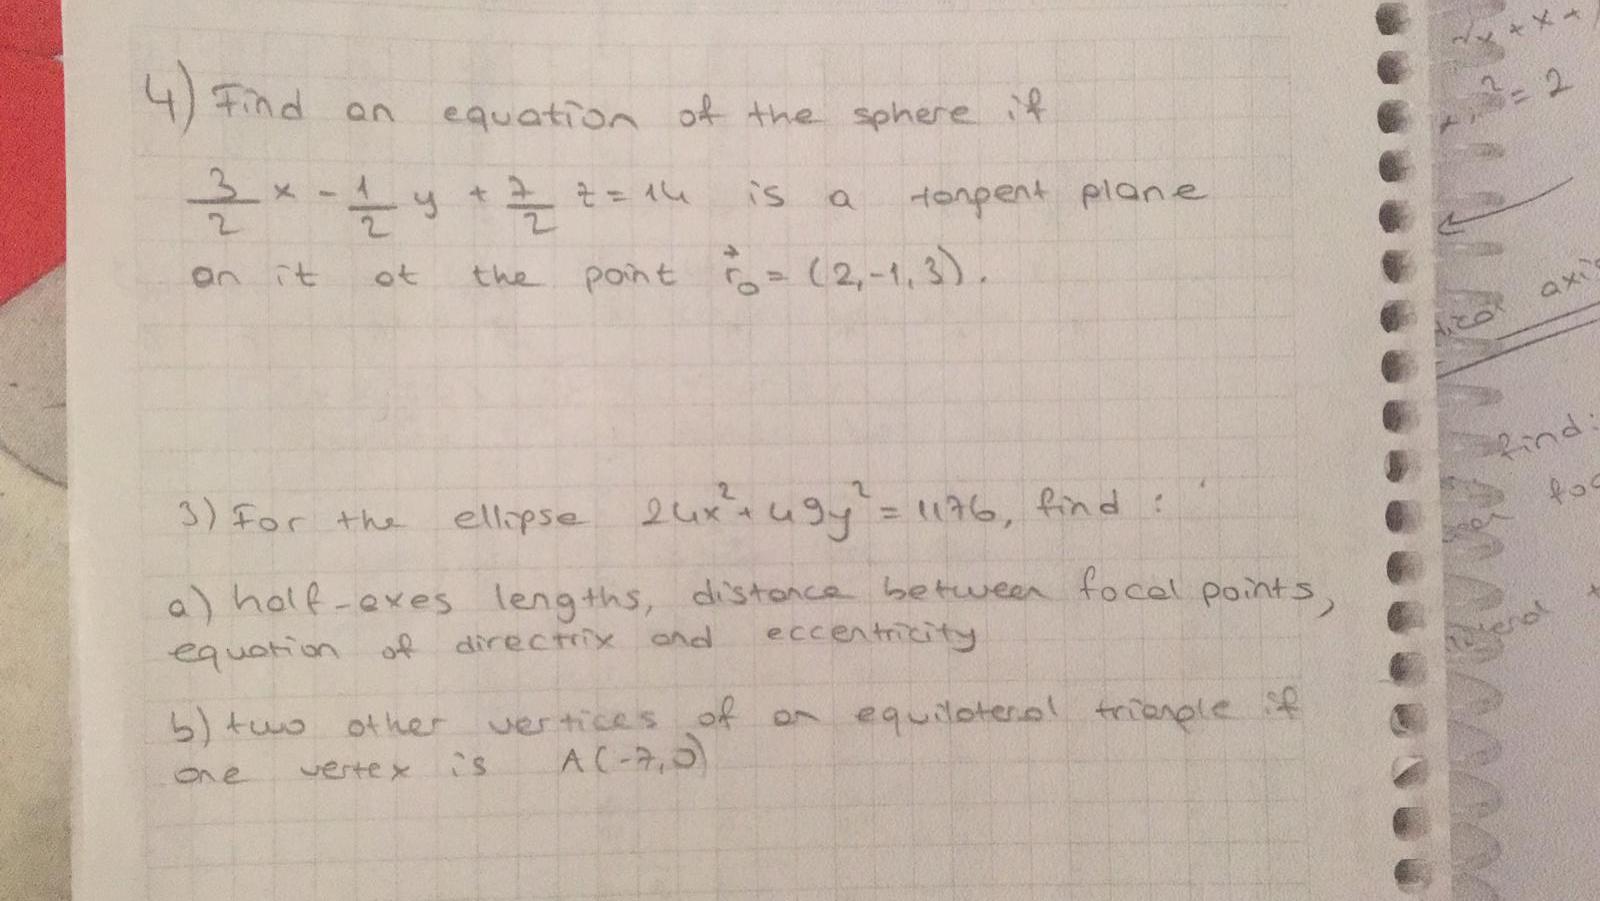 4) Find an equation of the sphere if
3/2 x - 1/2 y + 7/2 z = 14 is a tangent plane
on it at the point r⃗₀ = (2,-1,3).
3) For the ellipse 24x² + 49y² = 1176, find :
a) half-axes lengths, distance between focal points,
equation of directrix and eccentricity
b) two other vertices of an equilateral triangle if
one vertex is A(-7,0)
√x + x +
² = 2
axis
find:
foc